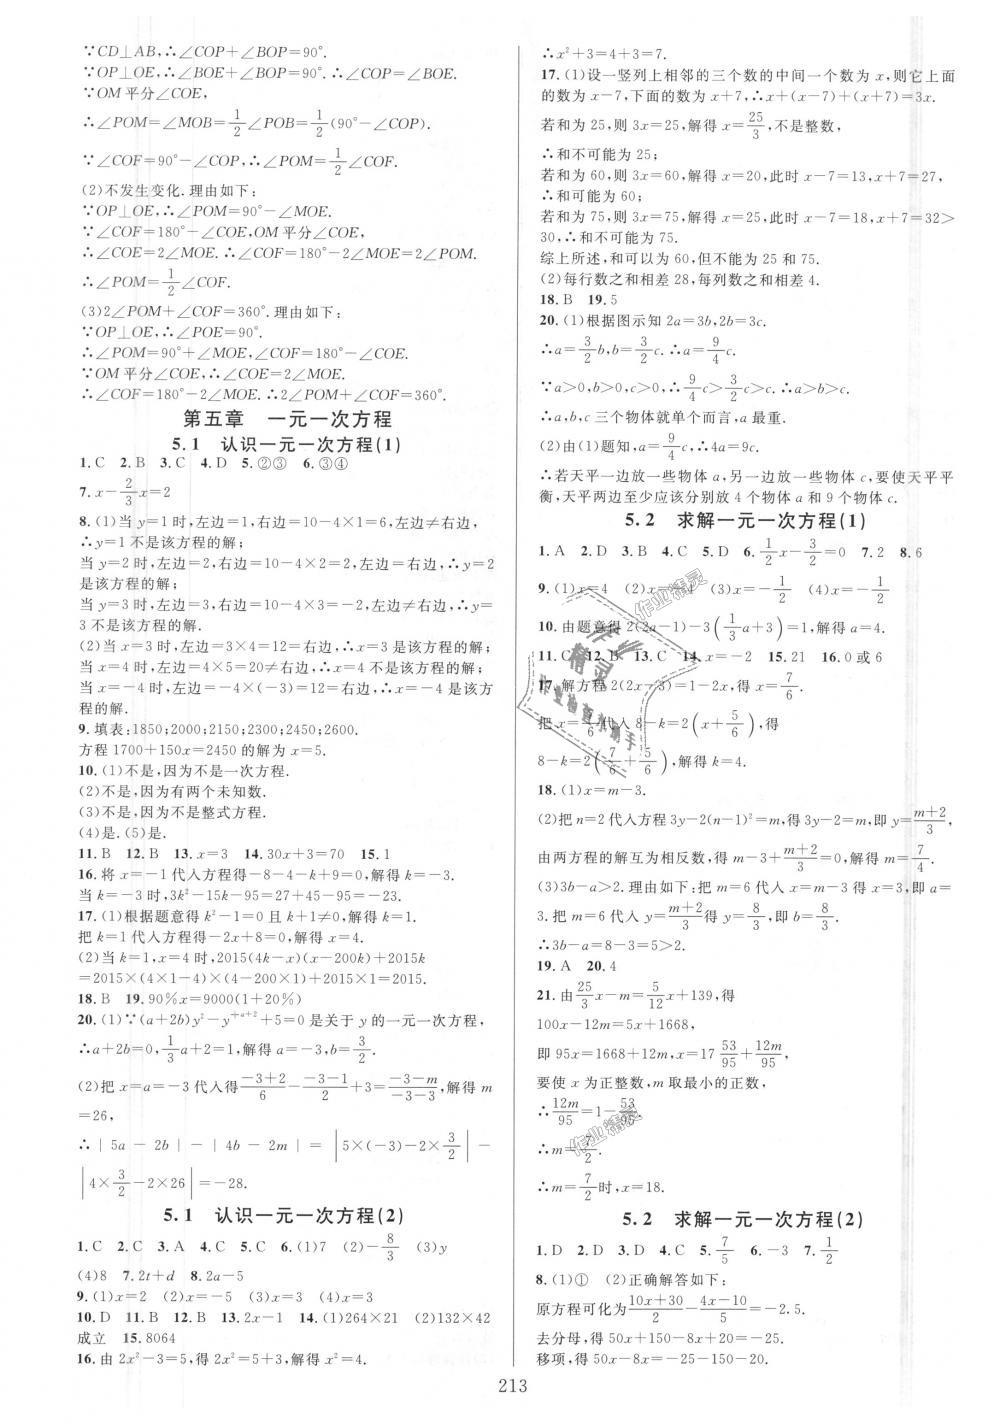 ∵CD⊥AB,∴∠COP+∠BOP=90°.
∵OP⊥OE,∴∠BOE+∠BOP=90°.∴∠COP=∠BOE.
∵OM平分∠COE,
∴∠POM=∠MOB=1/2∠POB=1/2(90°-∠COP).
∵∠COF=90°-∠COP,∴∠POM=1/2∠COF.
(2)不发生变化.理由如下:
∵OP⊥OE,∴∠POM=90°-∠MOE.
∵∠COF=180°-∠COE,OM平分∠COE,
∴∠COE=2∠MOE.∴∠COF=180°-2∠MOE=2∠POM.
∴∠POM=1/2∠COF.
(3)2∠POM+∠COF=360°.理由如下:
∵OP⊥OE,∴∠POE=90°.
∴∠POM=90°+∠MOE,∠COF=180°-∠COE.
∵OM平分∠COE,∴∠COE=2∠MOE.
∴∠COF=180°-2∠MOE.∴2∠POM+∠COF=360°.
第五章 一元一次方程
5.1 认识一元一次方程(1)
1.C 2.B 3.C 4.D 5.②③ 6.③④
7.x-2/3x=2
8.(1)当y=1时,左边=1,右边=10-4×1=6,左边≠右边,
∴y=1不是该方程的解;
当y=2时,左边=2,右边=10-4×2=2,左边=右边,∴y=2
是该方程的解;
当y=3时,左边=3,右边=10-4×3=-2,左边≠右边,∴y=
3不是该方程的解.
(2)当x=3时,左边=3×4=12=右边,∴x=3是该方程的解;
当x=4时,左边=4×5=20≠右边,∴x=4不是该方程的解;
当x=-4时,左边=-4×(-3)=12=右边,∴x=-4是该方
程的解.
9.填表:1850;2000;2150;2300;2450;2600.
方程1700+150x=2450的解为x=5.
10.(1)不是,因为不是一次方程.
(2)不是,因为有两个未知数.
(3)不是,因为不是整式方程.
(4)是.(5)是.
11.B 12.B 13.x=3 14.30x+3=70 15.1
16.将x=-1代入方程得-8-4-k+9=0,解得k=-3.
当k=-3时,3k²-15k-95=27+45-95=-23.
17.(1)根据题意得k²-1=0且k+1≠0,解得k=1.
把k=1代入方程得-2x+8=0,解得x=4.
(2)当k=1,x=4时,2015(4k-x)(x-200k)+2015k
=2015×(4×1-4)×(4-200×1)+2015×1=2015.
18.B 19.90%x=9000(1+20%)
20.(1)∵(a+2b)y²-y^(+a+2)+5=0是关于y的一元一次方程,
∴a+2b=0,1/3a+2=1,解得a=-3,b=3/2.
(2)把x=a=-3代入得(-3+2)/6-(-3-1)/2+3=(-3-m)/(-3-3),解得m
=26,
∴|5a-2b|-|4b-2m|=|5×(-3)-2×3/2|-
|4×3/2-2×26|=-28.
5.1 认识一元一次方程(2)
1.C 2.C 3.A 4.C 5.C 6.(1)7 (2)-8/3 (3)y
(4)8 7.2t+d 8.2a-5
9.(1)x=2 (2)x=-5 (3)x=3 (4)x=3
10.D 11.B 12.B 13.2x-1 14.(1)264×21 (2)132×42
成立 15.8064
16.由2x²-3=5,得2x²=5+3,解得x²=4.
∴x²+3=4+3=7.
17.(1)设一竖列上相邻的三个数的中间一个数为x,则它上面
的数为x-7,下面的数为x+7,∴x+(x-7)+(x+7)=3x.
若和为25,则3x=25,解得x=25/3,不是整数,
∴和不可能为25;
若和为60,则3x=60,解得x=20,此时x-7=13,x+7=27,
∴和可能为60;
若和为75,则3x=75,解得x=25,此时x-7=18,x+7=32>
30,∴和不可能为75.
综上所述,和可以为60,但不能为25和75.
(2)每行数之和相差28,每列数之和相差4.
18.B 19.5
20.(1)根据图示知2a=3b,2b=3c.
∴a=3/2b,b=3/2c.∴a=9/4c.
∵a>0,b>0,c>0,∴9/4c>3/2c>c.∴a>b>c.
∴a,b,c三个物体就单个而言,a最重.
(2)由(1)题知,a=9/4c,∴4a=9c.
∴若天平一边放一些物体a,另一边放一些物体c,要使天平平
衡,天平两边至少应该分别放4个物体a和9个物体c.
5.2 求解一元一次方程(1)
1.A 2.D 3.B 4.C 5.D 6.1/2x-3/2=0 7.2 8.6
9.(1)x=4 (2)x=-4 (3)x=-1/2 (4)x=-1/2
10.由题意得2(2a-1)-3(1/3a+3)=1,解得a=4.
11.C 12.B 13.C 14.x=-2 15.21 16.0或6
17.解方程2(2x-3)=1-2x,得x=7/6.
把x=7/6代入8-k=2(x+5/6),得
8-k=2(7/6+5/6),解得k=4.
18.(1)x=m-3.
(2)把n=2代入方程3y-2(n-1)²=m,得3y-2=m,即y=(m+2)/3,
由两方程的解互为相反数,得m-3+(m+2)/3=0,解得m=7/4.
(3)3b-a>2.理由如下:把m=6代入x=m-3得x=3,即a=
3.把m=6代入y=(m+2)/3得y=8/3,即b=8/3.
∴3b-a=8-3=5>2.
19.A 20.4
21.由25/3x-m=5/12x+139,得
100x-12m=5x+1668,
即95x=1668+12m,x=17 53/95+12m/95,
要使x为正整数,m取最小的正数,
∴12m/95=1-53/95.
∴m=7/2.
∴m=7/2时,x=18.
5.2 求解一元一次方程(2)
1.D 2.D 3.D 4.C 5.7/5 6.-3 7.1/2
8.(1)① (2)正确解答如下:
原方程可化为(10x+30)/2-(4x-10)/5=-2.5.
去分母,得50x+150-8x+20=-25.
移项,得50x-8x=-25-150-20.
213
作业精灵
作业精灵